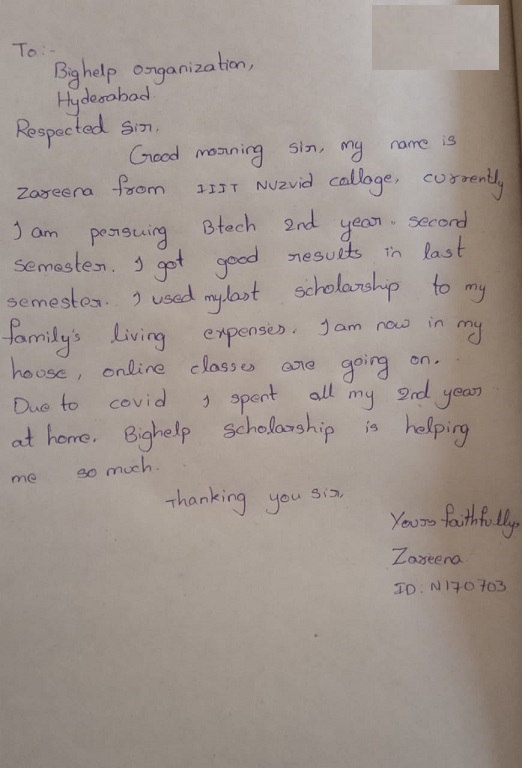 To:-
Bighelp organization,
Hyderabad
Respected sir.
Good morning sir, my name is
zareena from IIIT NUZVID collage, currently
I am persuing Btech 2nd year. second
semester. I got good results in last
semester. I used my last scholarship to my
family's living expenses. I am now in my
house, online classes are going on.
Due to covid I spent all my 2nd year
at home. Bighelp scholarship is helping
me so much.
Thanking you sir,
Yours faithfully,
Zareena.
ID: N170703